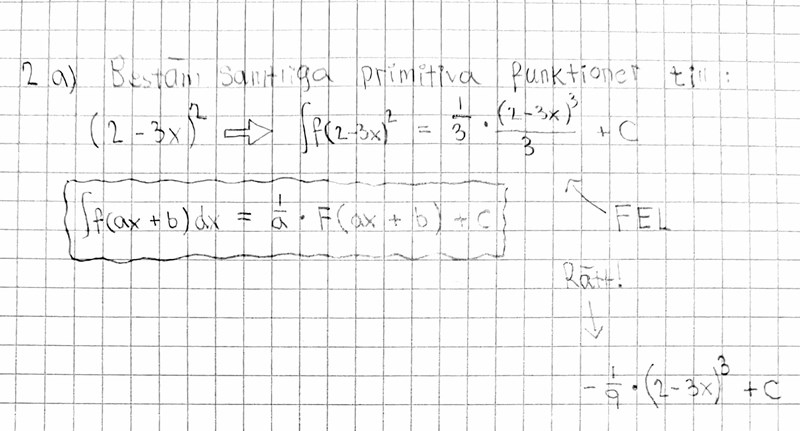 2 a) Bestäm samtliga primitiva funktioner till:
(2-3x)² ⇒ ∫f(2-3x)² = 1/3 · (2-3x)³/3 + C
∫f(ax+b)dx = 1/a · F(ax+b) + C
FEL
Rätt!
-1/9 · (2-3x)³ + C